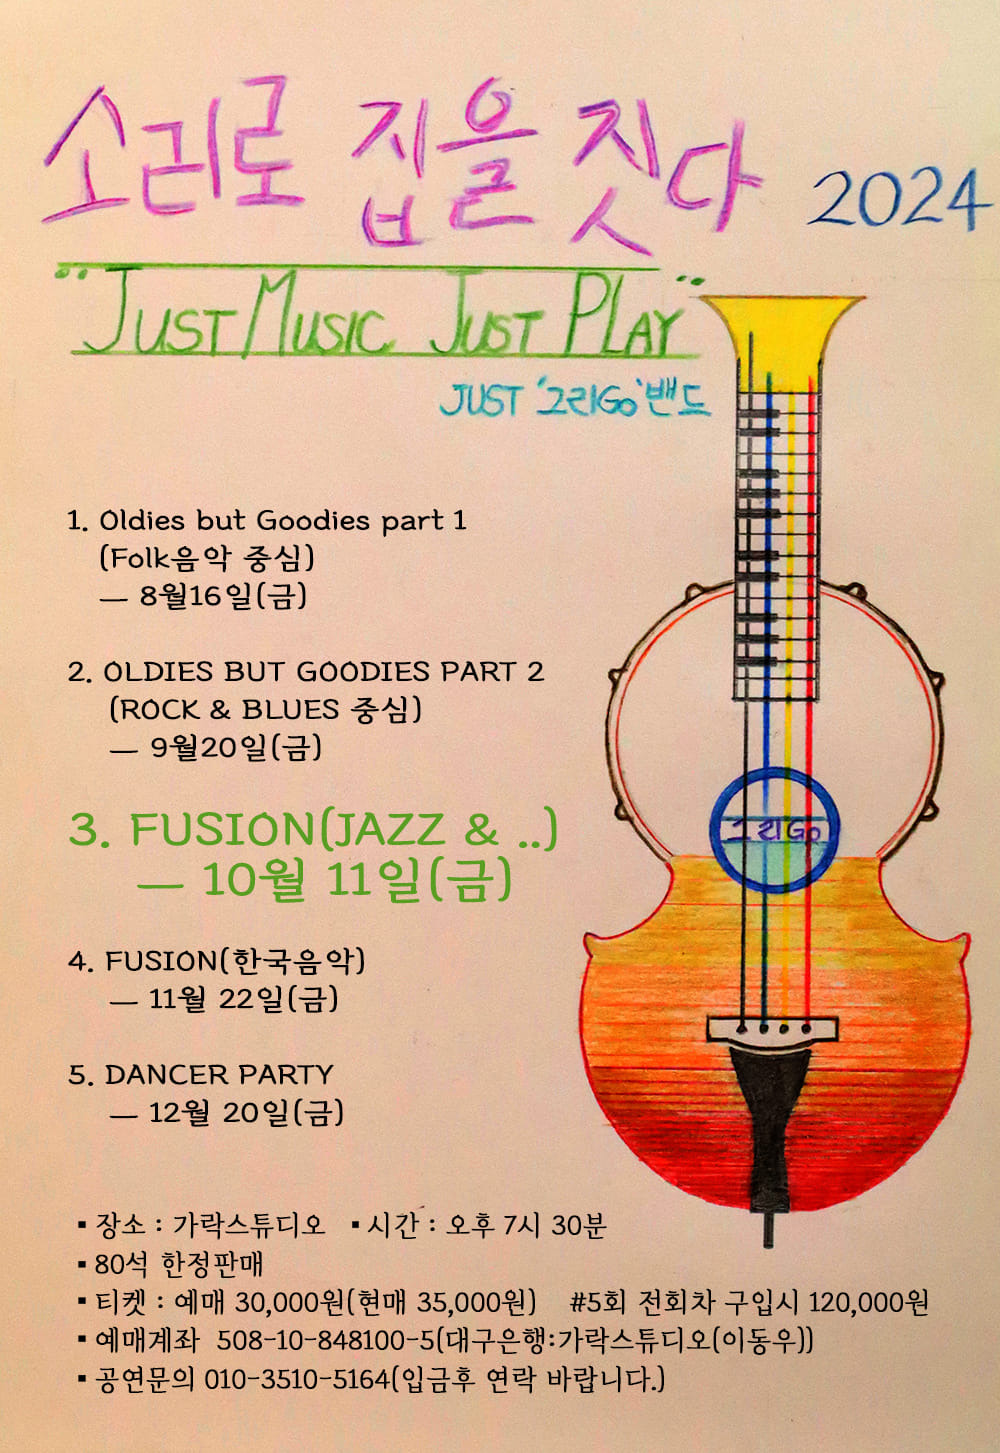 소리로 집을 짓다 2024
"Just Music Just Play"
JUST '그리Go' 밴드
1. Oldies but Goodies part 1
(Folk음악 중심)
— 8월16일(금)
2. OLDIES BUT GOODIES PART 2
(ROCK & BLUES 중심)
— 9월20일(금)
3. FUSION(JAZZ & ..)
— 10월 11일(금)
그리Go
4. FUSION(한국음악)
— 11월 22일(금)
5. DANCER PARTY
— 12월 20일(금)
▪ 장소 : 가락스튜디오 ▪ 시간 : 오후 7시 30분
▪ 80석 한정판매
▪ 티켓 : 예매 30,000원(현매 35,000원) #5회 전회차 구입시 120,000원
▪ 예매계좌 508-10-848100-5(대구은행:가락스튜디오(이동우))
▪ 공연문의 010-3510-5164(입금후 연락 바랍니다.)